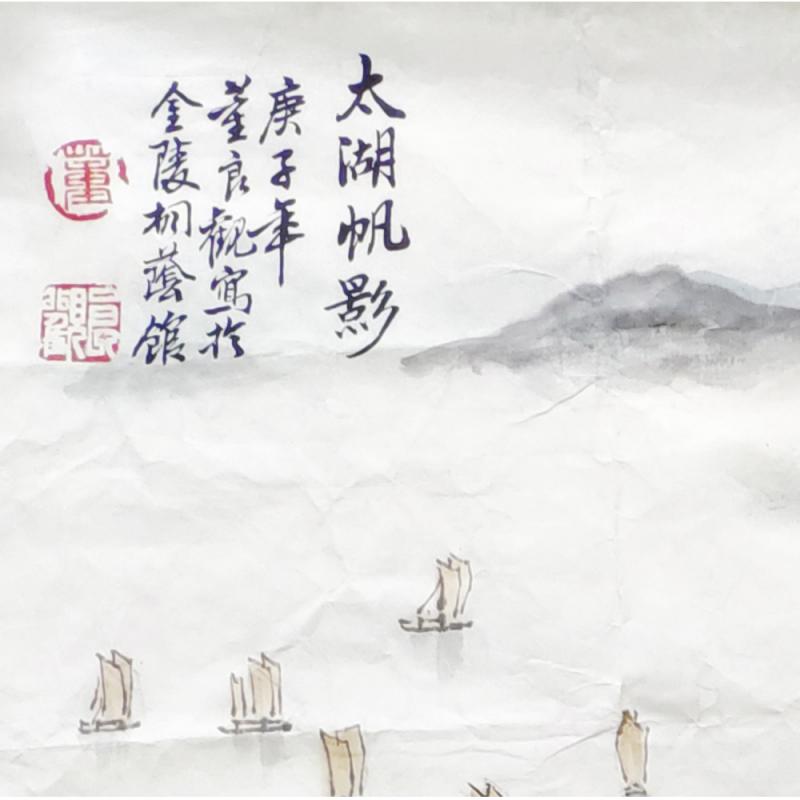 太湖帆影
庚子年
董良觀寫於
金陵桐蔭館
董
良觀